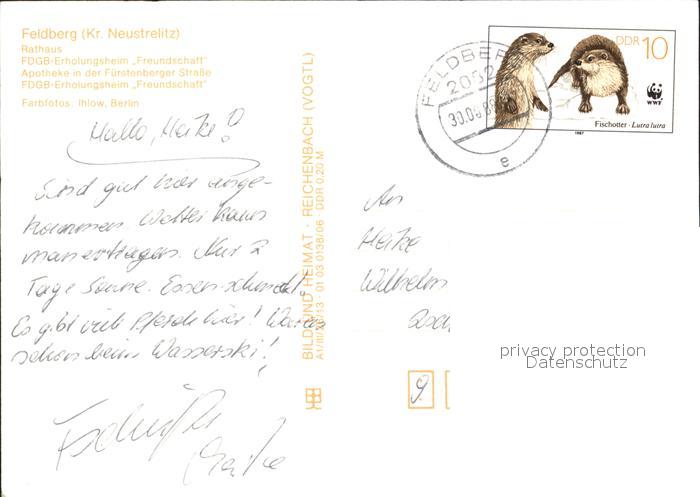 Feldberg (Kr. Neustrelitz)
Rathaus
FDGB-Erholungsheim „Freundschaft"
Apotheke in der Fürstenberger Straße
FDGB-Erholungsheim „Freundschaft"
Farbfotos: Ihlow, Berlin
Hallo, Heike!
Sind gut hier ange-
kommen. Wetter kann
man ertragen. Nur 2
Tage Sonne. Essen schmeckt.
Es gibt viele Pferde hier! Waren
schon beim Wasserski!
BILD UND HEIMAT · REICHENBACH (VOGTL)
A1/III/26/13 01 03 0138/06 · DDR 0,20 M
FELDBERG
2082
30.09.88
e
DDR 10
WWF
Fischotter · Lutra lutra
1987
An
Heike
Wilhelm
9
privacy protection
Datenschutz